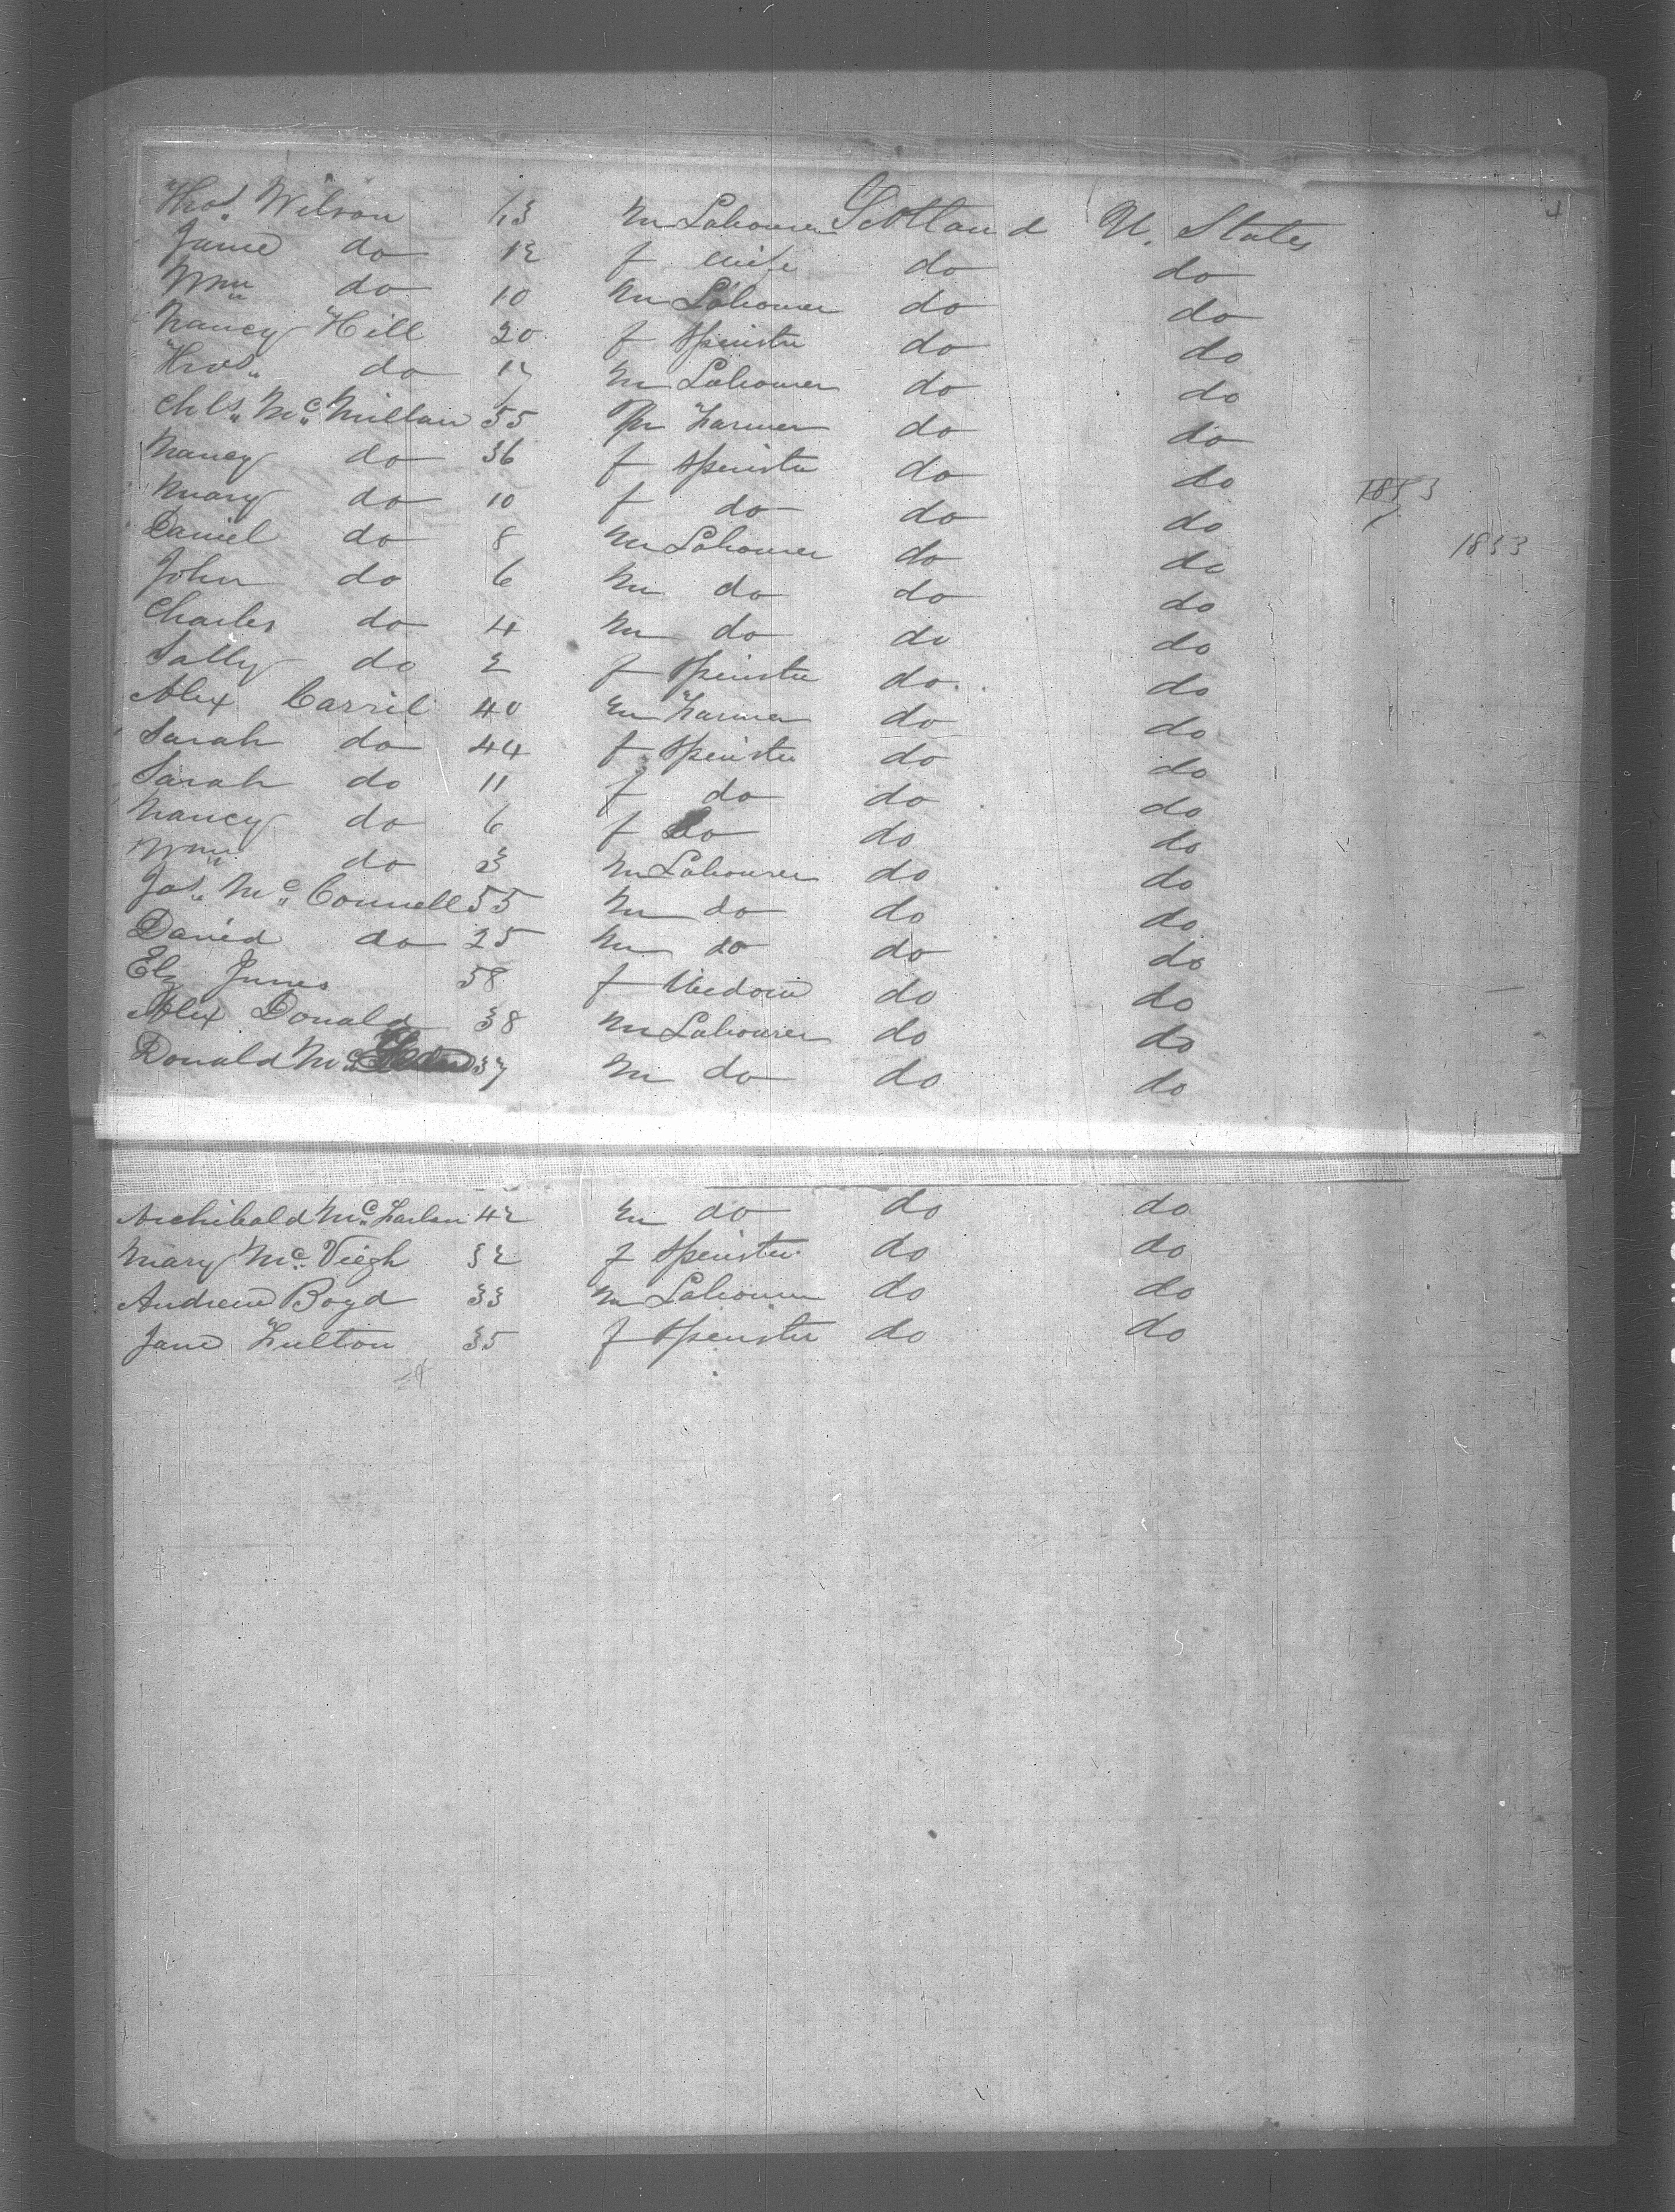 4
Thos. Wilson 13 m Labourer Scotland U. States
Jane do 12 f wife do do
Wm do 10 m Labourer do do
Nancy Hill 20 f Spinster do do
Thos. do 17 m Labourer do do
Chls. Mc. Millan 55 m Farmer do do
Nancy do 36 f Spinster do do
Mary do 10 f do do do 1853
Daniel do 8 m Labourer do do 1853
John do 6 m do do do
Charles do 4 m do do do
Sally do 2 f Spinster do do
Alex Carril 40 m Farmer do do
Sarah do 44 f Spinster do do
Sarah do 11 f do do do
Nancy do 6 f do do do
Wm do 3 m Labourer do do
Jas. Mc. Connell 55 m do do do
David do 25 m do do do
Elz Junes 58 f Widow do do
Alex Donald 38 m Labourer do do
Donald Mc. 37 m do do do
Archibald Mc. Farlan 42 m do do do
Mary Mc. Viegh 32 f Spinster do do
Andrew Boyd 33 m Labourer do do
Jane Fulton 35 f Spinster do do